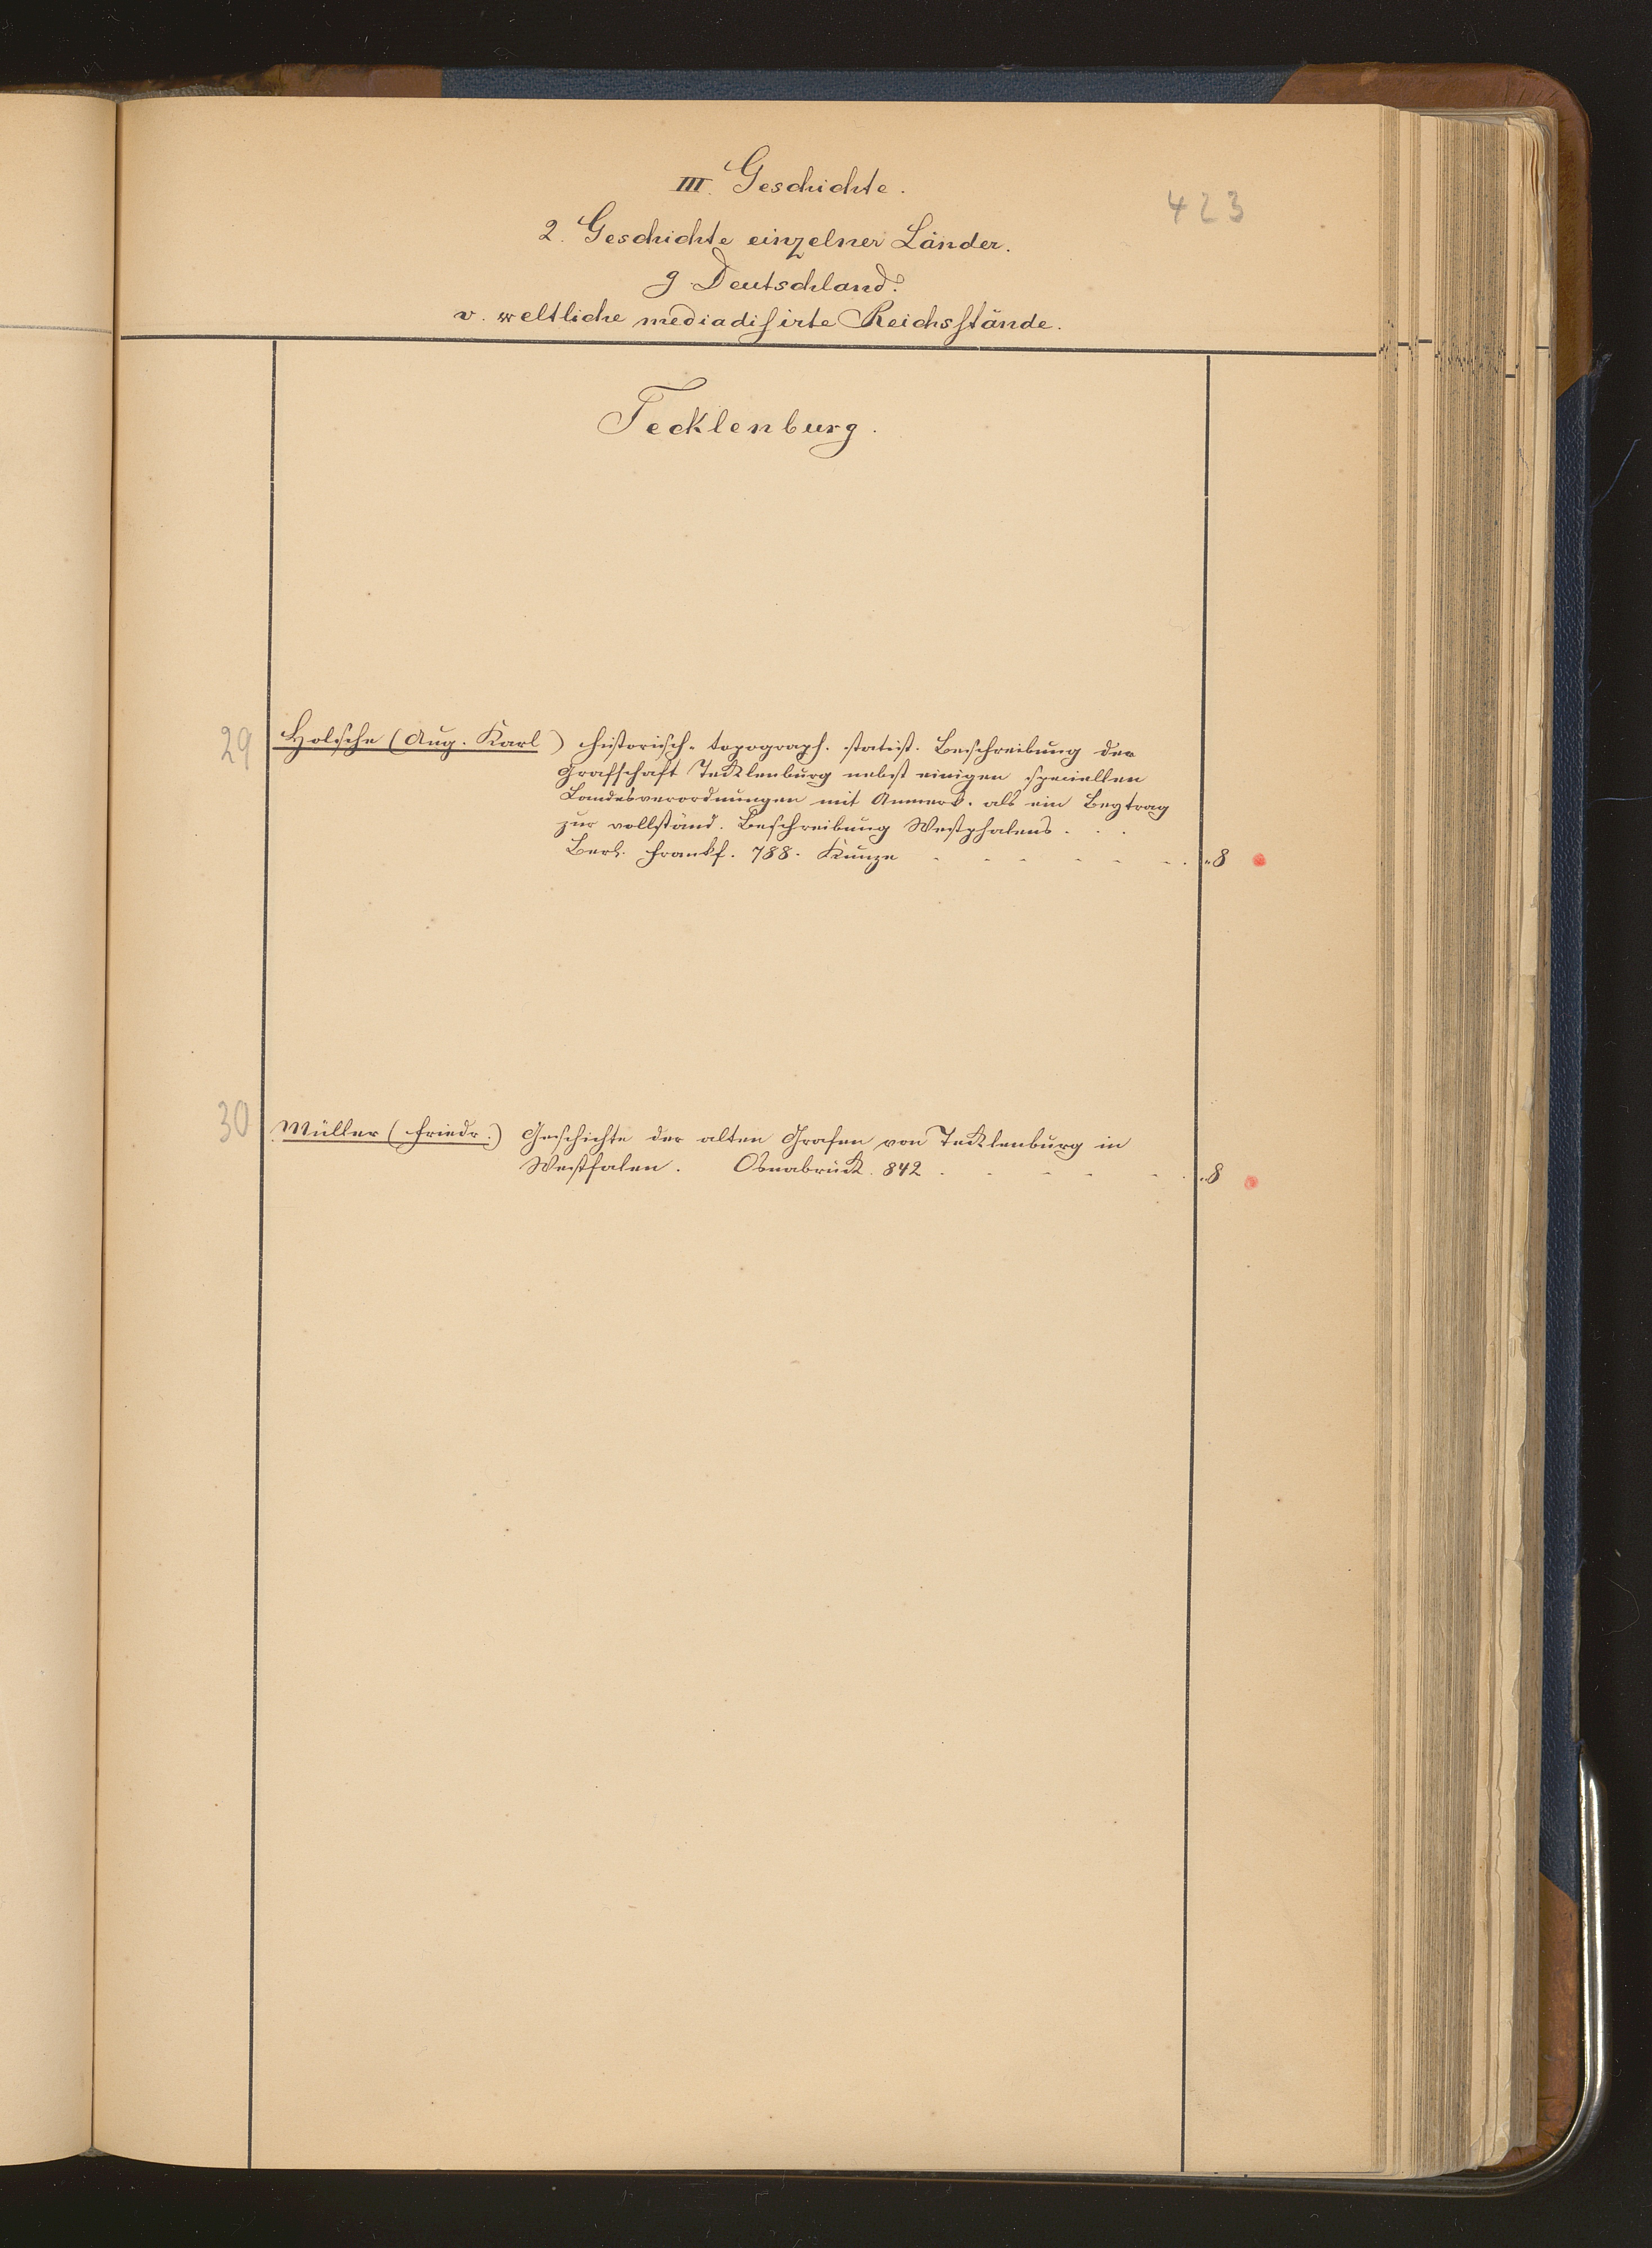 III. Geschichte.
423
2. Geschichte einzelner Länder.
g Deutschland.
v. weltliche mediadisirte Reichsstände.
Tecklenburg.
29 Holsche (Aug. Karl) historisch-topograph. statist. Beschreibung der
Grafschaft Tecklenburg nebst einigen speciellen
Landesverordnungen mit Anmerk. als ein Beytrag
zur vollständ. Beschreibung Westphalens . . .
Berl. Frankf. 788. Kunze . . . . . . . „8
30 Müller (Friedr.) Geschichte der alten Grafen von Tecklenburg in
Westfalen. Osnabrück. 842 . . . . . . „8